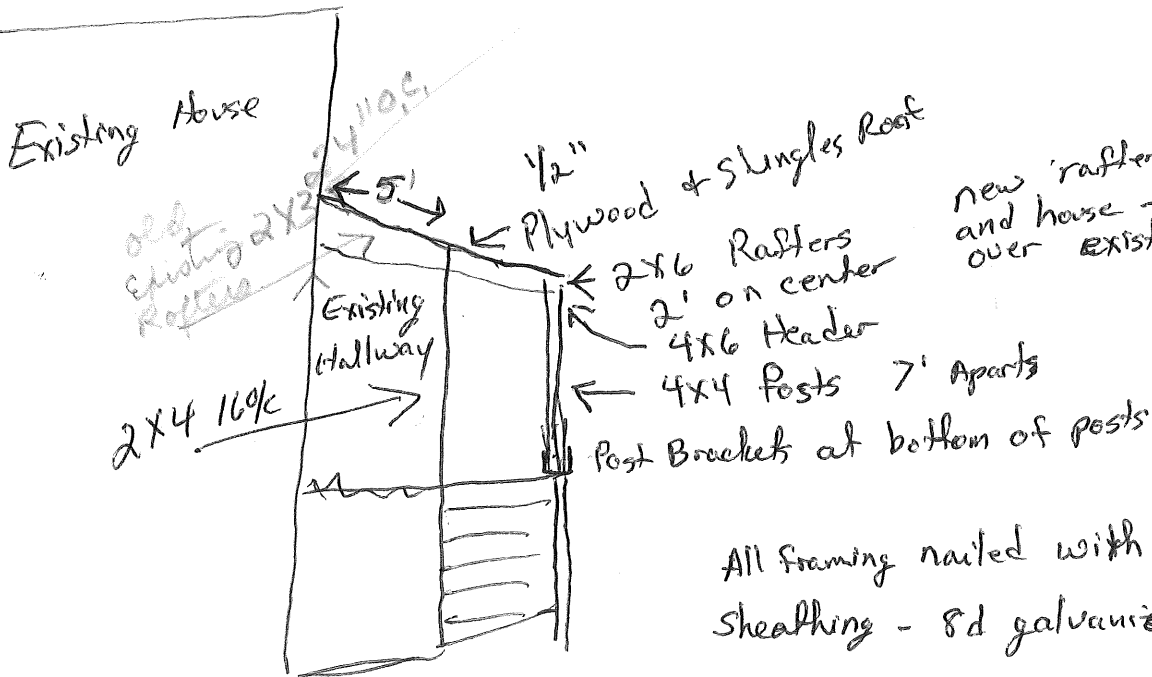 Existing House
old
Existing 2X3 24" O.C.
Rafters
5'
1/2"
Plywood & Shingles Roof
2X6 Rafters
2' on center
4X6 Header
4X4 Posts 7' Aparts
Post Brackets at bottom of posts
Existing
Hallway
2X4 16 o/c
new rafter
and house -
over exist
All framing nailed with
Sheathing - 8d galvaniz